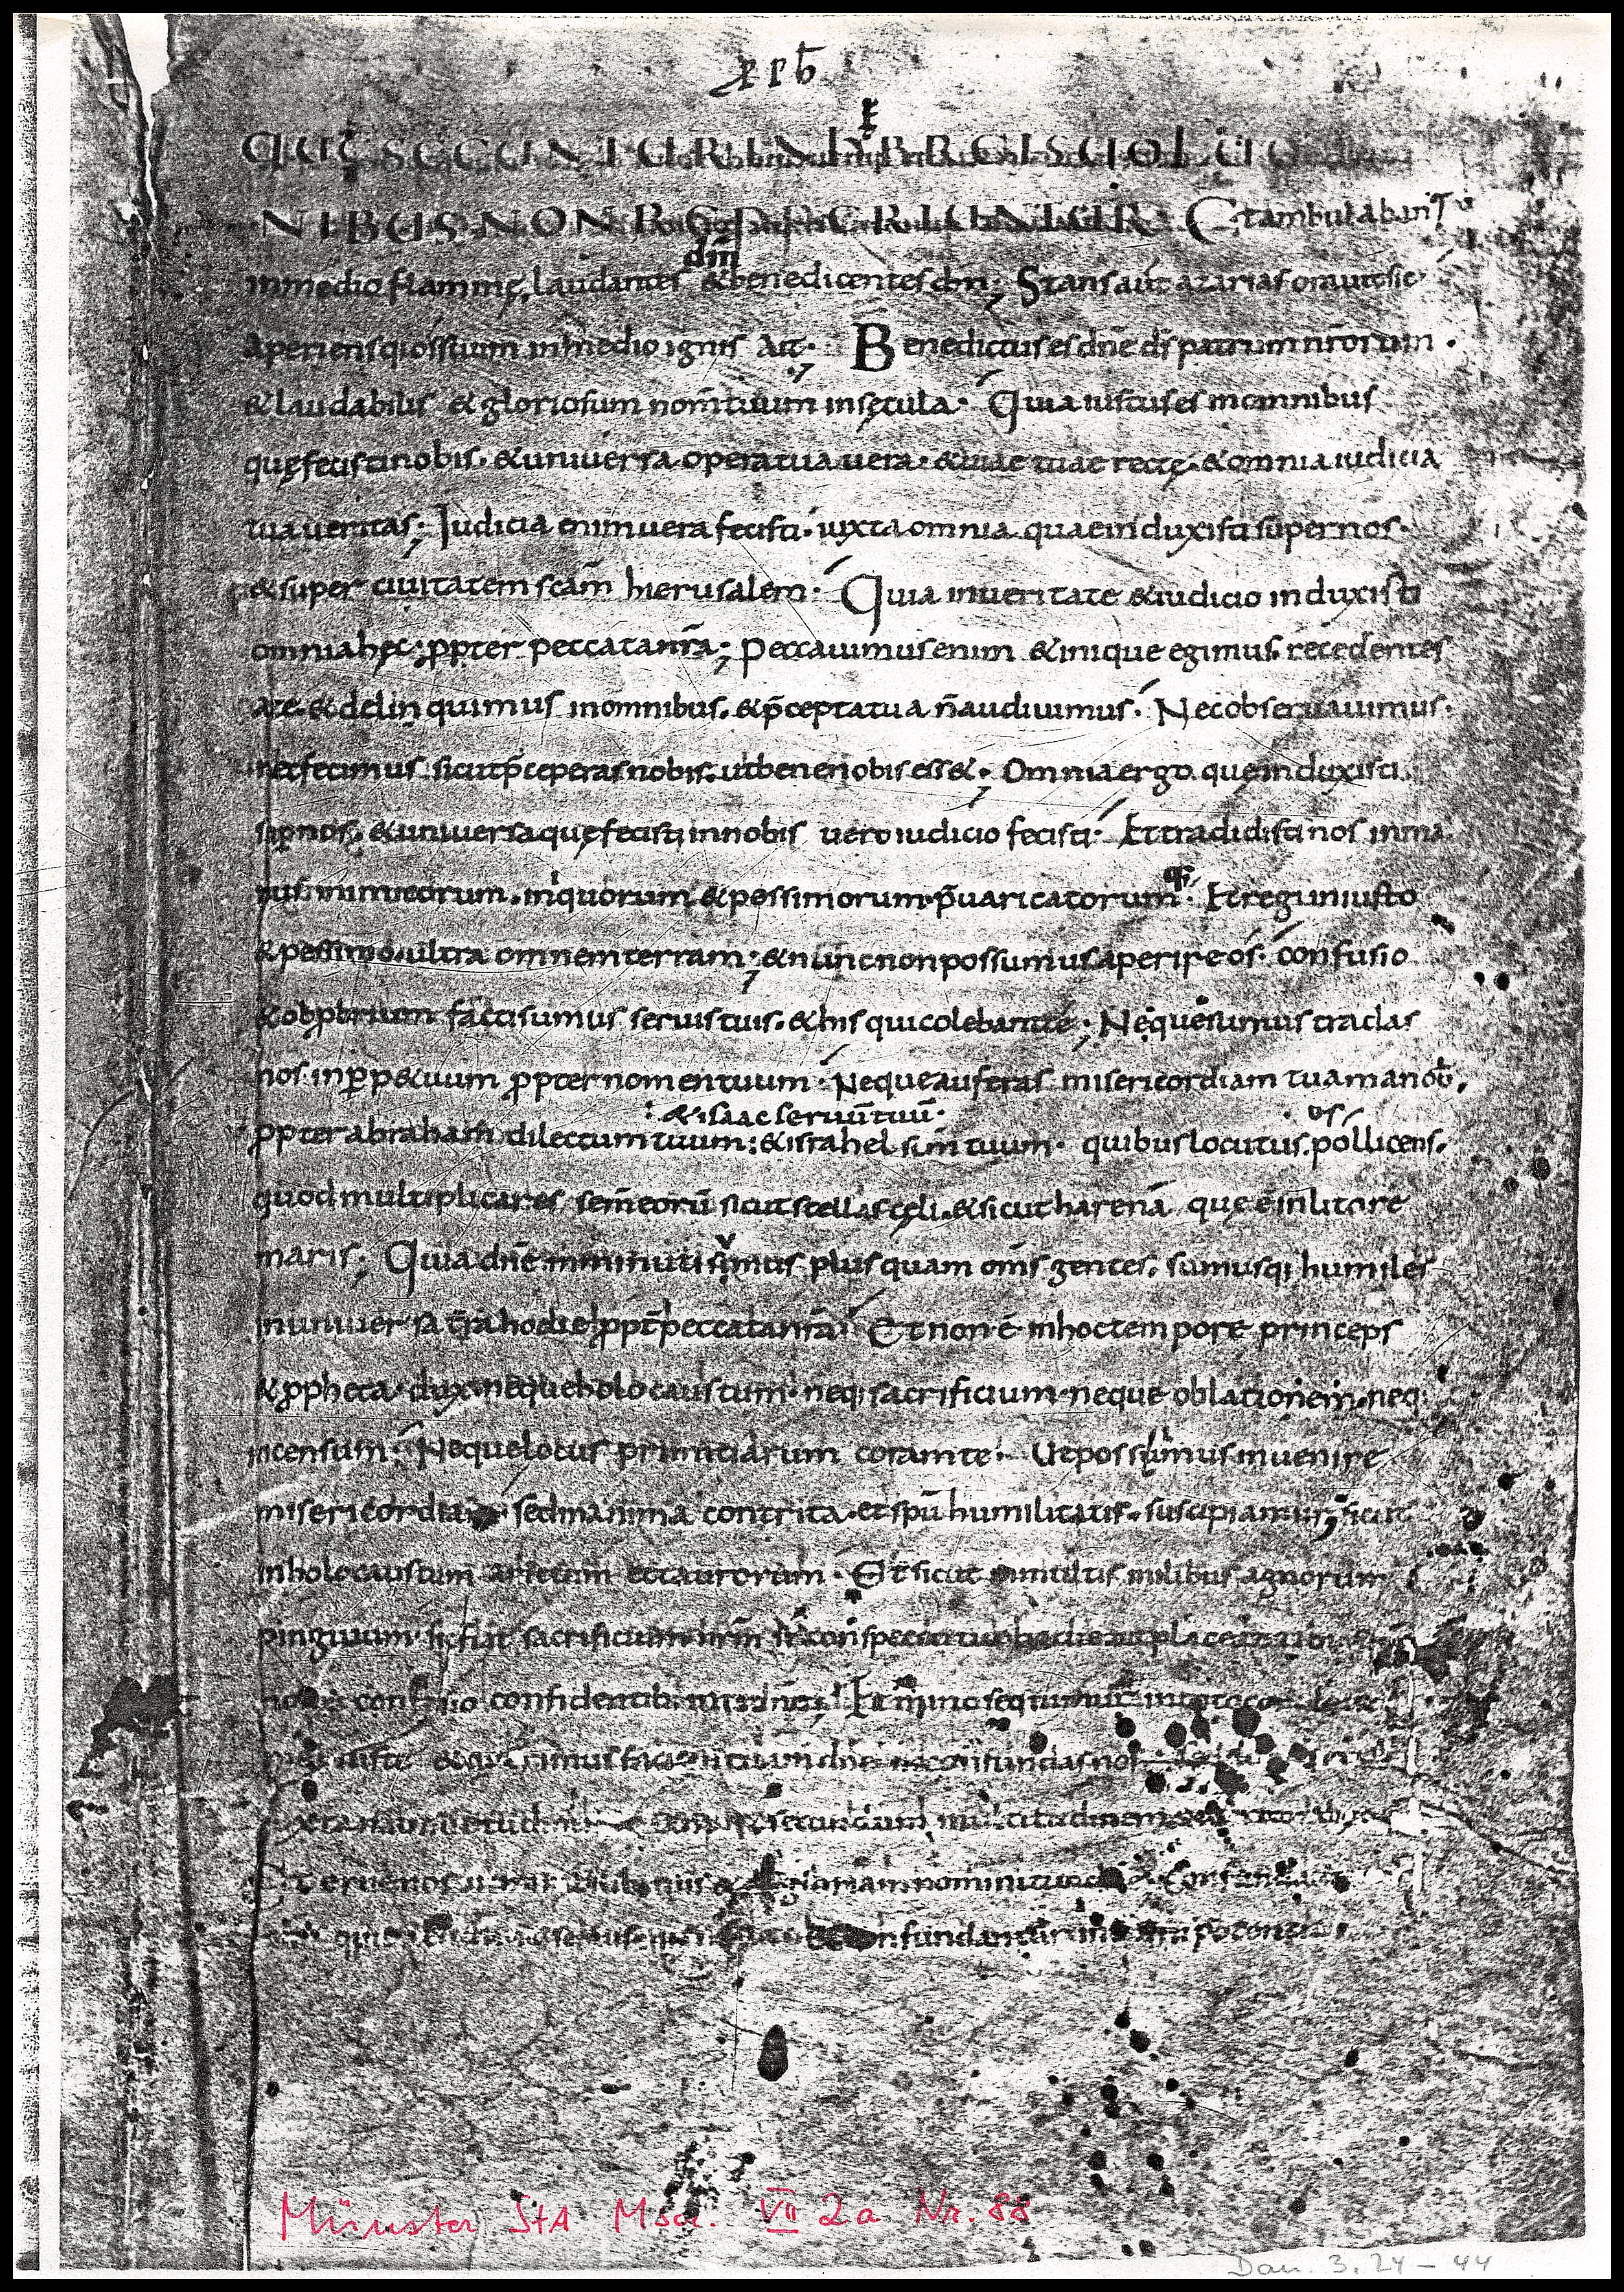 QUĘ SECUNTUR IN HEBREIS UOLUMI
NIBUS NON REPPERIUNTUR Et ambulabant
dm̄
in medio flammę, laudantes & benedicentes dn̄o; Stans aut̄ azarias orauit sic
aperiensq; os suum in medio ignis Ait; Benedictus es dn̄e ds̄ patrum nr̄orum.
& laudabilis & gloriosum nom̄ tuum in sęcula. Quia iustus es in omnibus
quę fecisti nobis. & uniuersa opera tua uera. & uiae tuae rectę. & omnia iudicia
tua ueritas; Iudicia enim uera fecisti. iuxta omnia quae induxisti super nos.
& super ciuitatem scām hierusalem. Quia in ueritate & iudicio induxisti
omnia hęc; ꝓpter peccata nr̄a; Peccauimus enim & inique egimus. recedentes
a te. & delinquimus in omnibus. & p̄cepta tua n̄ audiuimus. Nec obseruauimus.
nec fecimus sicut p̄ceperas nobis. ut bene nobis ess&; Omnia ergo quę induxisti
sup̱ nos. & uniuersa quę fecisti in nobis uero iudicio fecisti. Et tradidisti nos in ma
nus inimicorum. iniquorum & pessimorum p̄uaricatorumq;. Et regi iniusto
& pessimo ultra omnem terram; & nunc non possumus aperire os. confusio
& obꝓbrium facti sumus seruis tuis. & his qui colebant te; Ne quesumus tradas
nos in ꝑp&uum ꝓpter nomen tuum. Neque auferas misericordiam tuam a nob̄.
& isaac seruū tuū.
ꝓpter abraham dilectum tuum: & israhel sc̄m tuum. quibus locutus. pollicens.
quod multiplicares sem̄ eorū sicut stellas cęli. & sicut harenā quę ē in litore
maris; Quia dn̄e imminuti sumus plus quam om̄s gentes. sumusq; humiles
in uniuersa tr̄a hodie ꝓpt̄ peccata nr̄a. Et non ē in hoc tempore princeps
& ꝓpheta. dux neque holocaustum. neq; sacrificium. neque oblationem. neq;
incensum. Neque locus primitiarum coram te. Ut possimus inuenire
misericordiam sed in anima contrita. et spū humilitatis. suscipiamur; sicut
in holocaustum arietum et taurorum. Et sicut in multis milibus agnorum
pinguium. sic fiat sacrificium nr̄m in conspectu tuo hodie ut placeat tibi
non est confusio confidentibus in te dn̄e; Et nunc sequimur in toto corde
& quęrimus faciem tuam dn̄e ne confundas nos
iuxta mansuetudinem & secundum multitudinem
Et erue nos in mirabilibus tuis & da gloriam nomini tuo & confundantur
confundantur in omni potentia
Münster StA Mscr. VII 2a Nr. 88
Dan. 3, 24 – 44